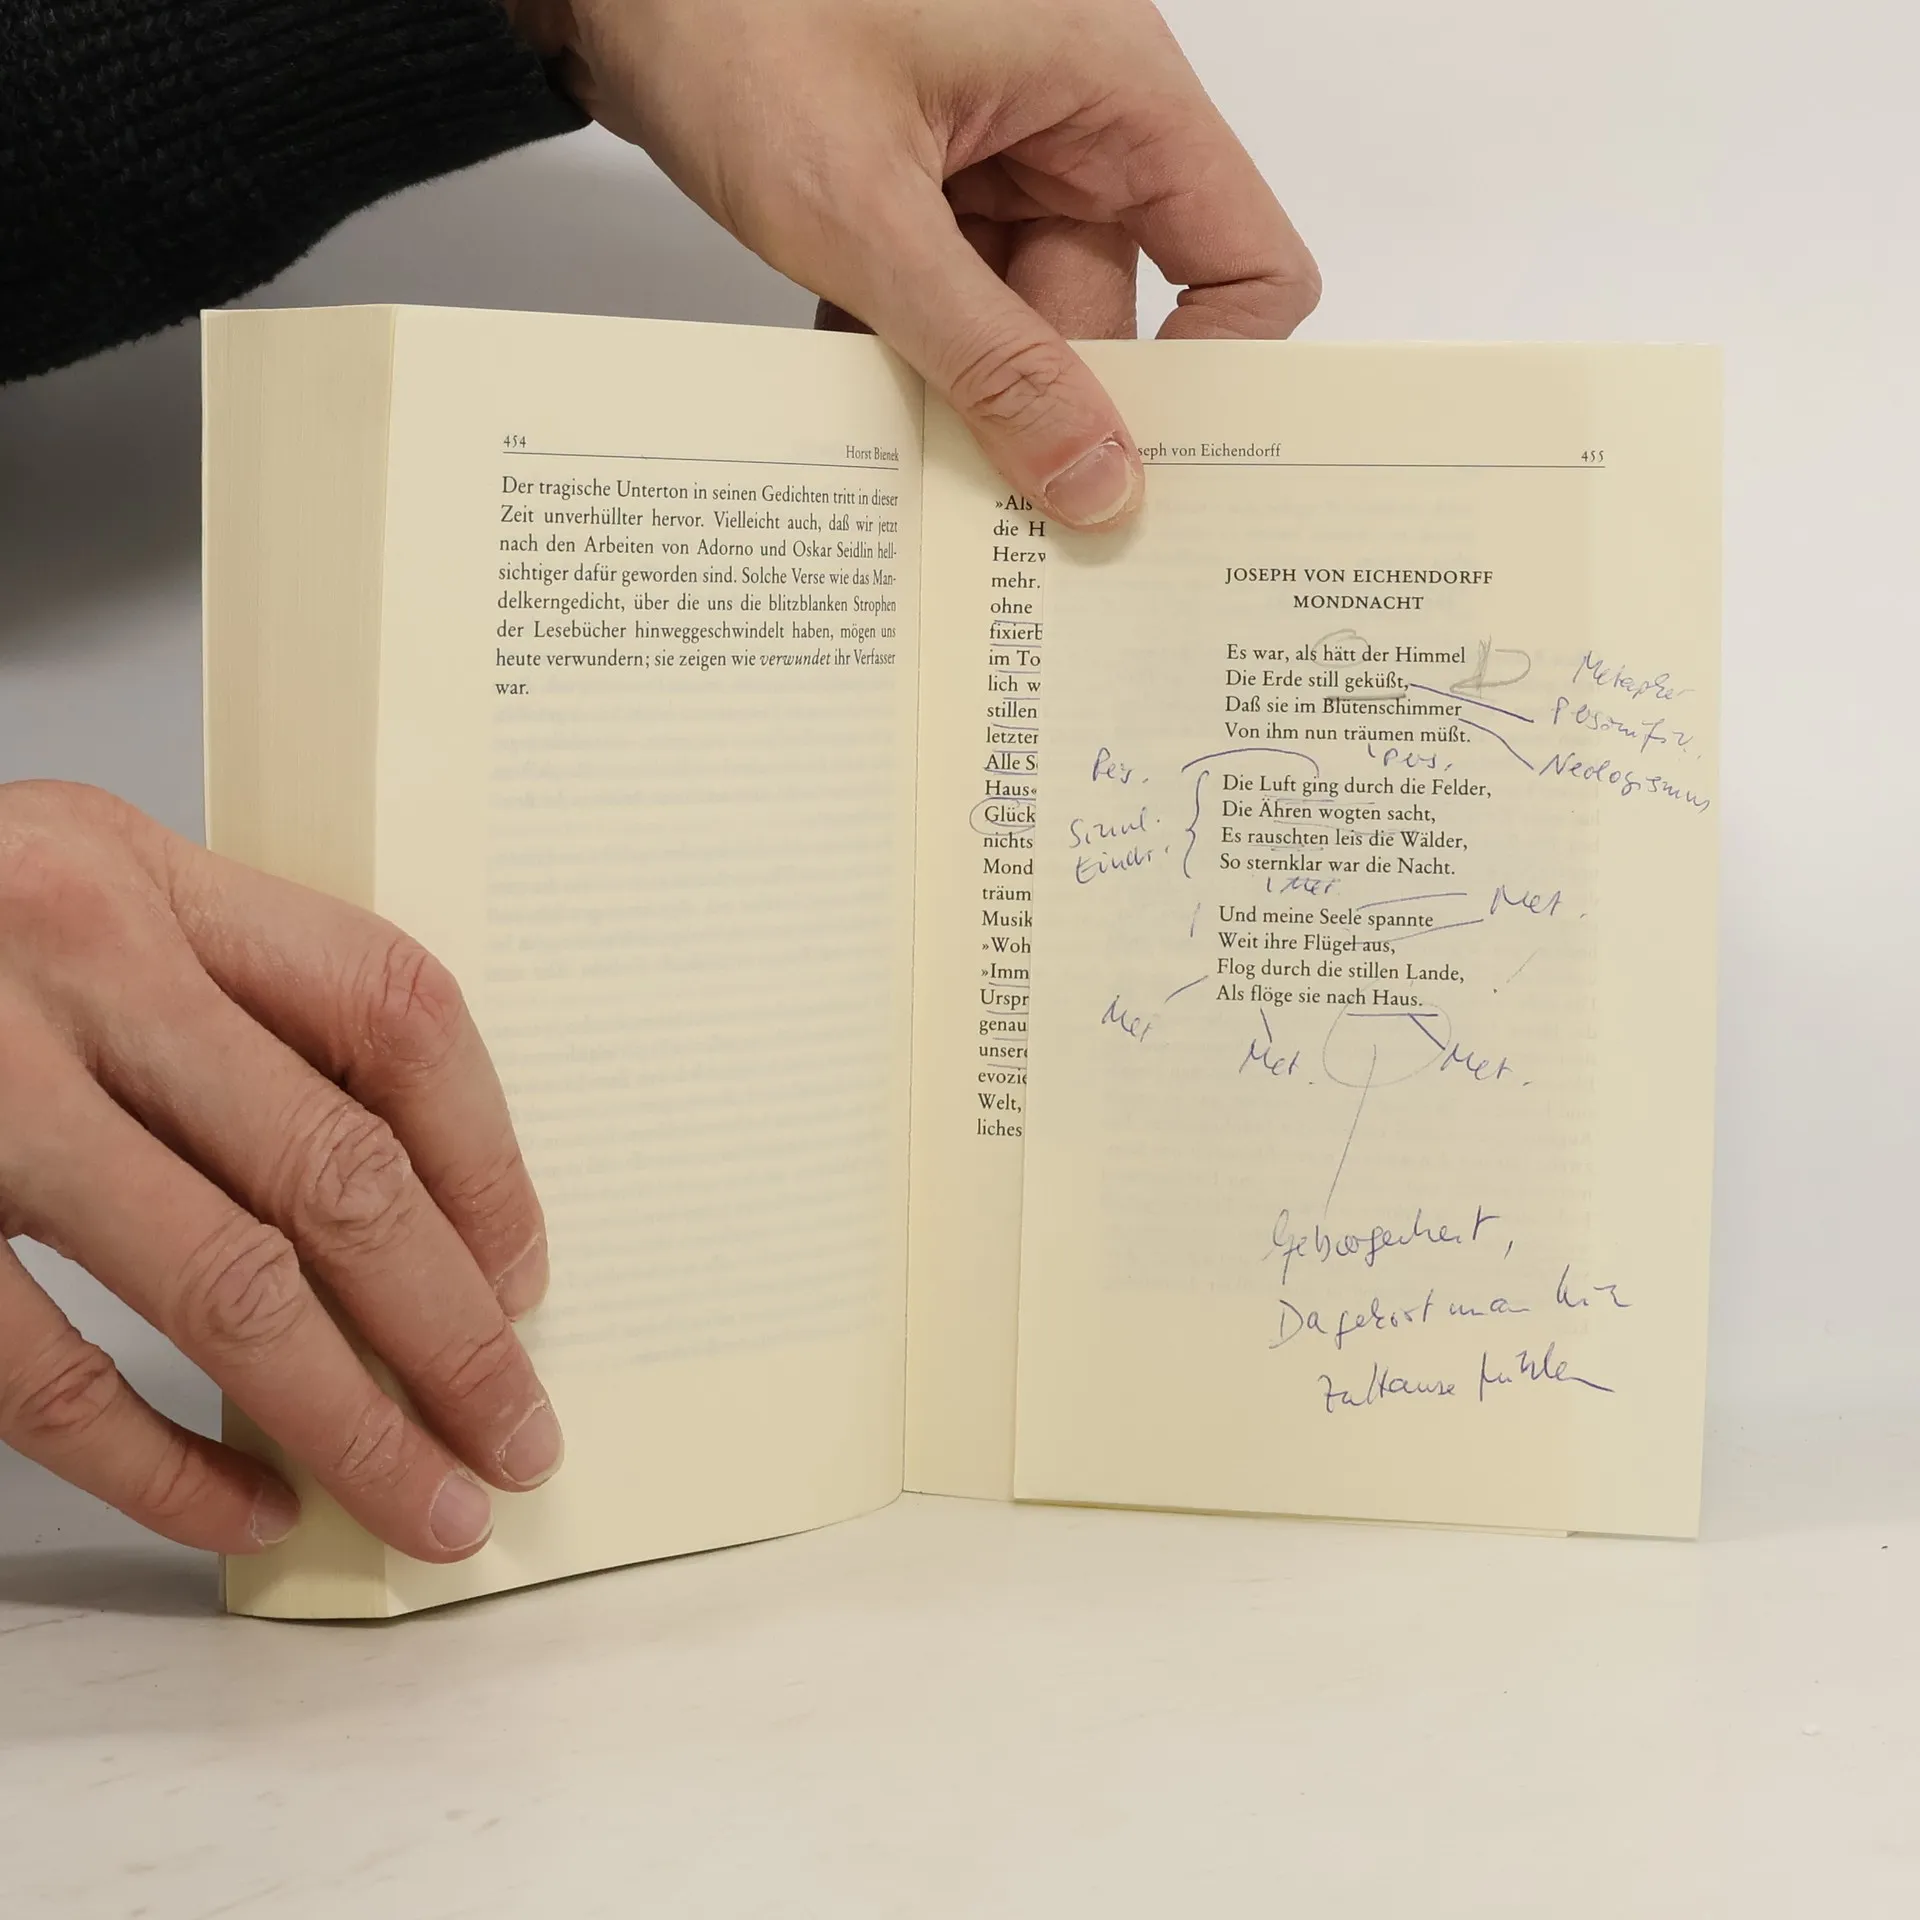 454
Horst Bienek
Der tragische Unterton in seinen Gedichten tritt in dieser
Zeit unverhüllter hervor. Vielleicht auch, daß wir jetzt
nach den Arbeiten von Adorno und Oskar Seidlin hell-
sichtiger dafür geworden sind. Solche Verse wie das Man-
delkerngedicht, über die uns die blitzblanken Strophen
der Lesebücher hinweggeschwindelt haben, mögen uns
heute verwundern; sie zeigen wie verwundet ihr Verfasser
war.
»Als
die H
Herzw
mehr.
ohne
fixierb
im To
lich w
stillen
letzter
Alle S
Haus«
Glück
nichts
Mond
träum
Musik
»Woh
»Imm
Urspr
genau
unsere
evozie
Welt,
liches
seph von Eichendorff
455
JOSEPH VON EICHENDORFF
MONDNACHT
Es war, als hätt der Himmel
Die Erde still geküßt,
Daß sie im Blütenschimmer
Von ihm nun träumen müßt.
Metapher
Personifiz.
Neologismus
Pers.
Pers.
Die Luft ging durch die Felder,
Die Ähren wogten sacht,
Es rauschten leis die Wälder,
So sternklar war die Nacht.
Sinnl.
Eindr.
Met.
Und meine Seele spannte
Weit ihre Flügel aus,
Flog durch die stillen Lande,
Als flöge sie nach Haus.
Met.
Met
Met.
Met.
Geborgenheit,
Da gehört man hin
Zuhause fühlen